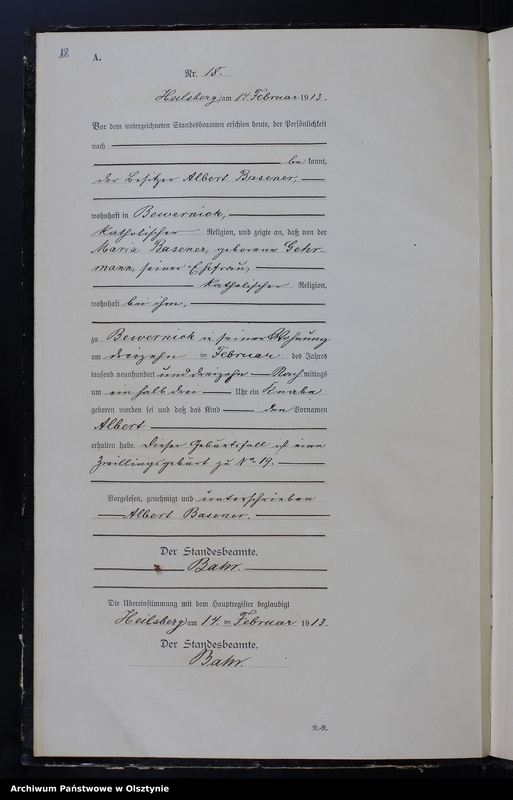 18
A.
Nr. 18.
Heilsberg, am 14. Februar 1913.
Vor dem unterzeichneten Standesbeamten erschien heute, der Persönlichkeit
nach
bekannt,
der Besitzer Albert Basener,
wohnhaft in Bewernick,
katholischer Religion, und zeigte an, daß von der
Maria Basener, geborene Gehr-
mann, seiner Ehefrau,
katholischer Religion,
wohnhaft bei ihm,
zu Bewernick in seiner Wohnung
am dreizehn ten Februar des Jahres
tausend neunhundert und dreizehn Nachmittags
um ein halb drei Uhr ein Knabe
geboren worden sei und daß das Kind den Vornamen
Albert
erhalten habe. Dieser Geburtsfall ist eine
Zwillingsgeburt zu No 19.
Vorgelesen, genehmigt und unterschrieben
Albert Basener.
Der Standesbeamte.
Bahr.
Die Übereinstimmung mit dem Hauptregister beglaubigt
Heilsberg, am 14. ten Februar 1913.
Der Standesbeamte.
Bahr.
N.-R.
Archiwum Państwowe w Olsztynie